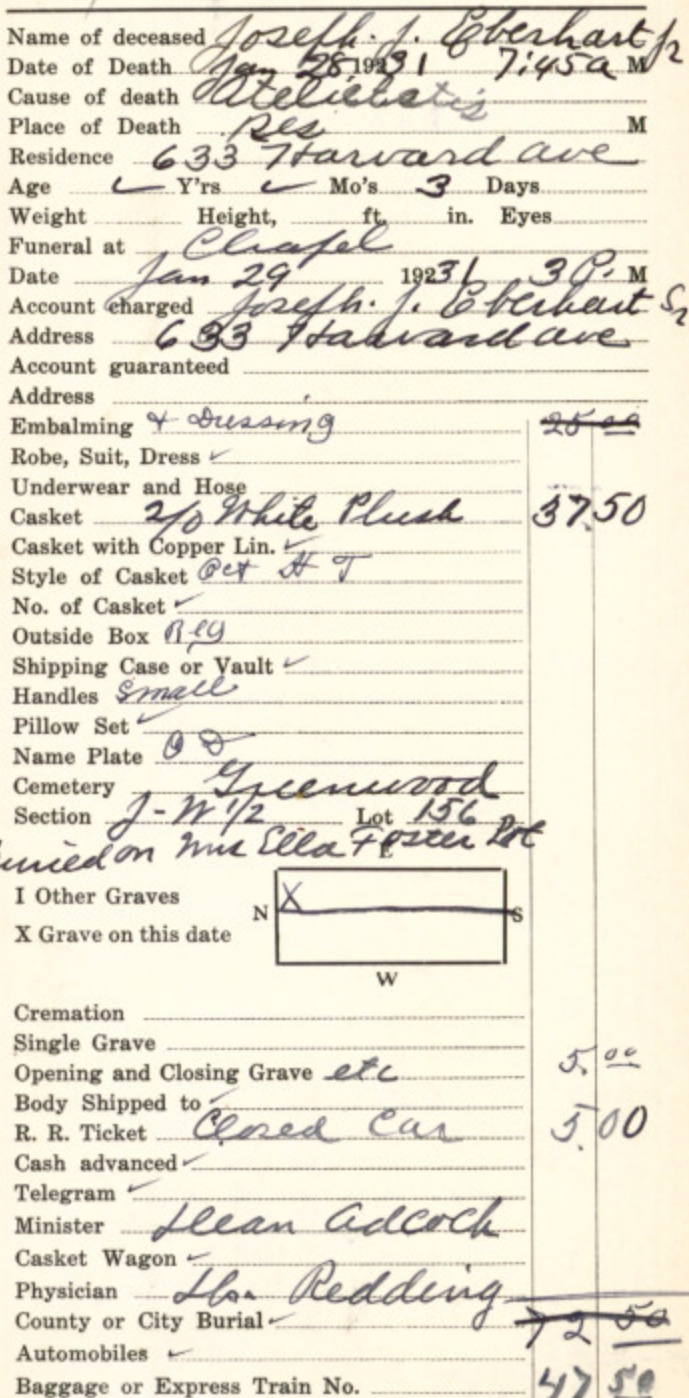 Name of deceased Joseph. J. Eberhart Jr
Date of Death Jan 28 1931 7:45a M
Cause of death
Place of Death Res M
Residence 633 Harvard ave
Age ✓ Y'rs ✓ Mo's 3 Days
Weight Height, ft. in. Eyes
Funeral at Chapel
Date Jan 29 19231 3 P. M
Account charged Joseph. J. Eberhart Sr
Address 633 Harvard ave
Account guaranteed
Address
Embalming & Dressing 25 00
Robe, Suit, Dress ✓
Underwear and Hose
Casket 2/0 White Plush 37.50
Casket with Copper Lin. ✓
Style of Casket Oct H T
No. of Casket ✓
Outside Box Reg
Shipping Case or Vault ✓
Handles Small
Pillow Set ✓
Name Plate O D
Cemetery Greenwood
Section J-W 1/2 Lot 156
Buried on Mrs Ella Foster Lot
I Other Graves
X Grave on this date
E
N X S
W
Cremation
Single Grave
Opening and Closing Grave etc 5.00
Body Shipped to ✓
R. R. Ticket Closed Car 5.00
Cash advanced ✓
Telegram ✓
Minister Dean Adcock
Casket Wagon ✓
Physician Dr. Redding
County or City Burial ✓ 72 50
Automobiles ✓
Baggage or Express Train No. 47 50